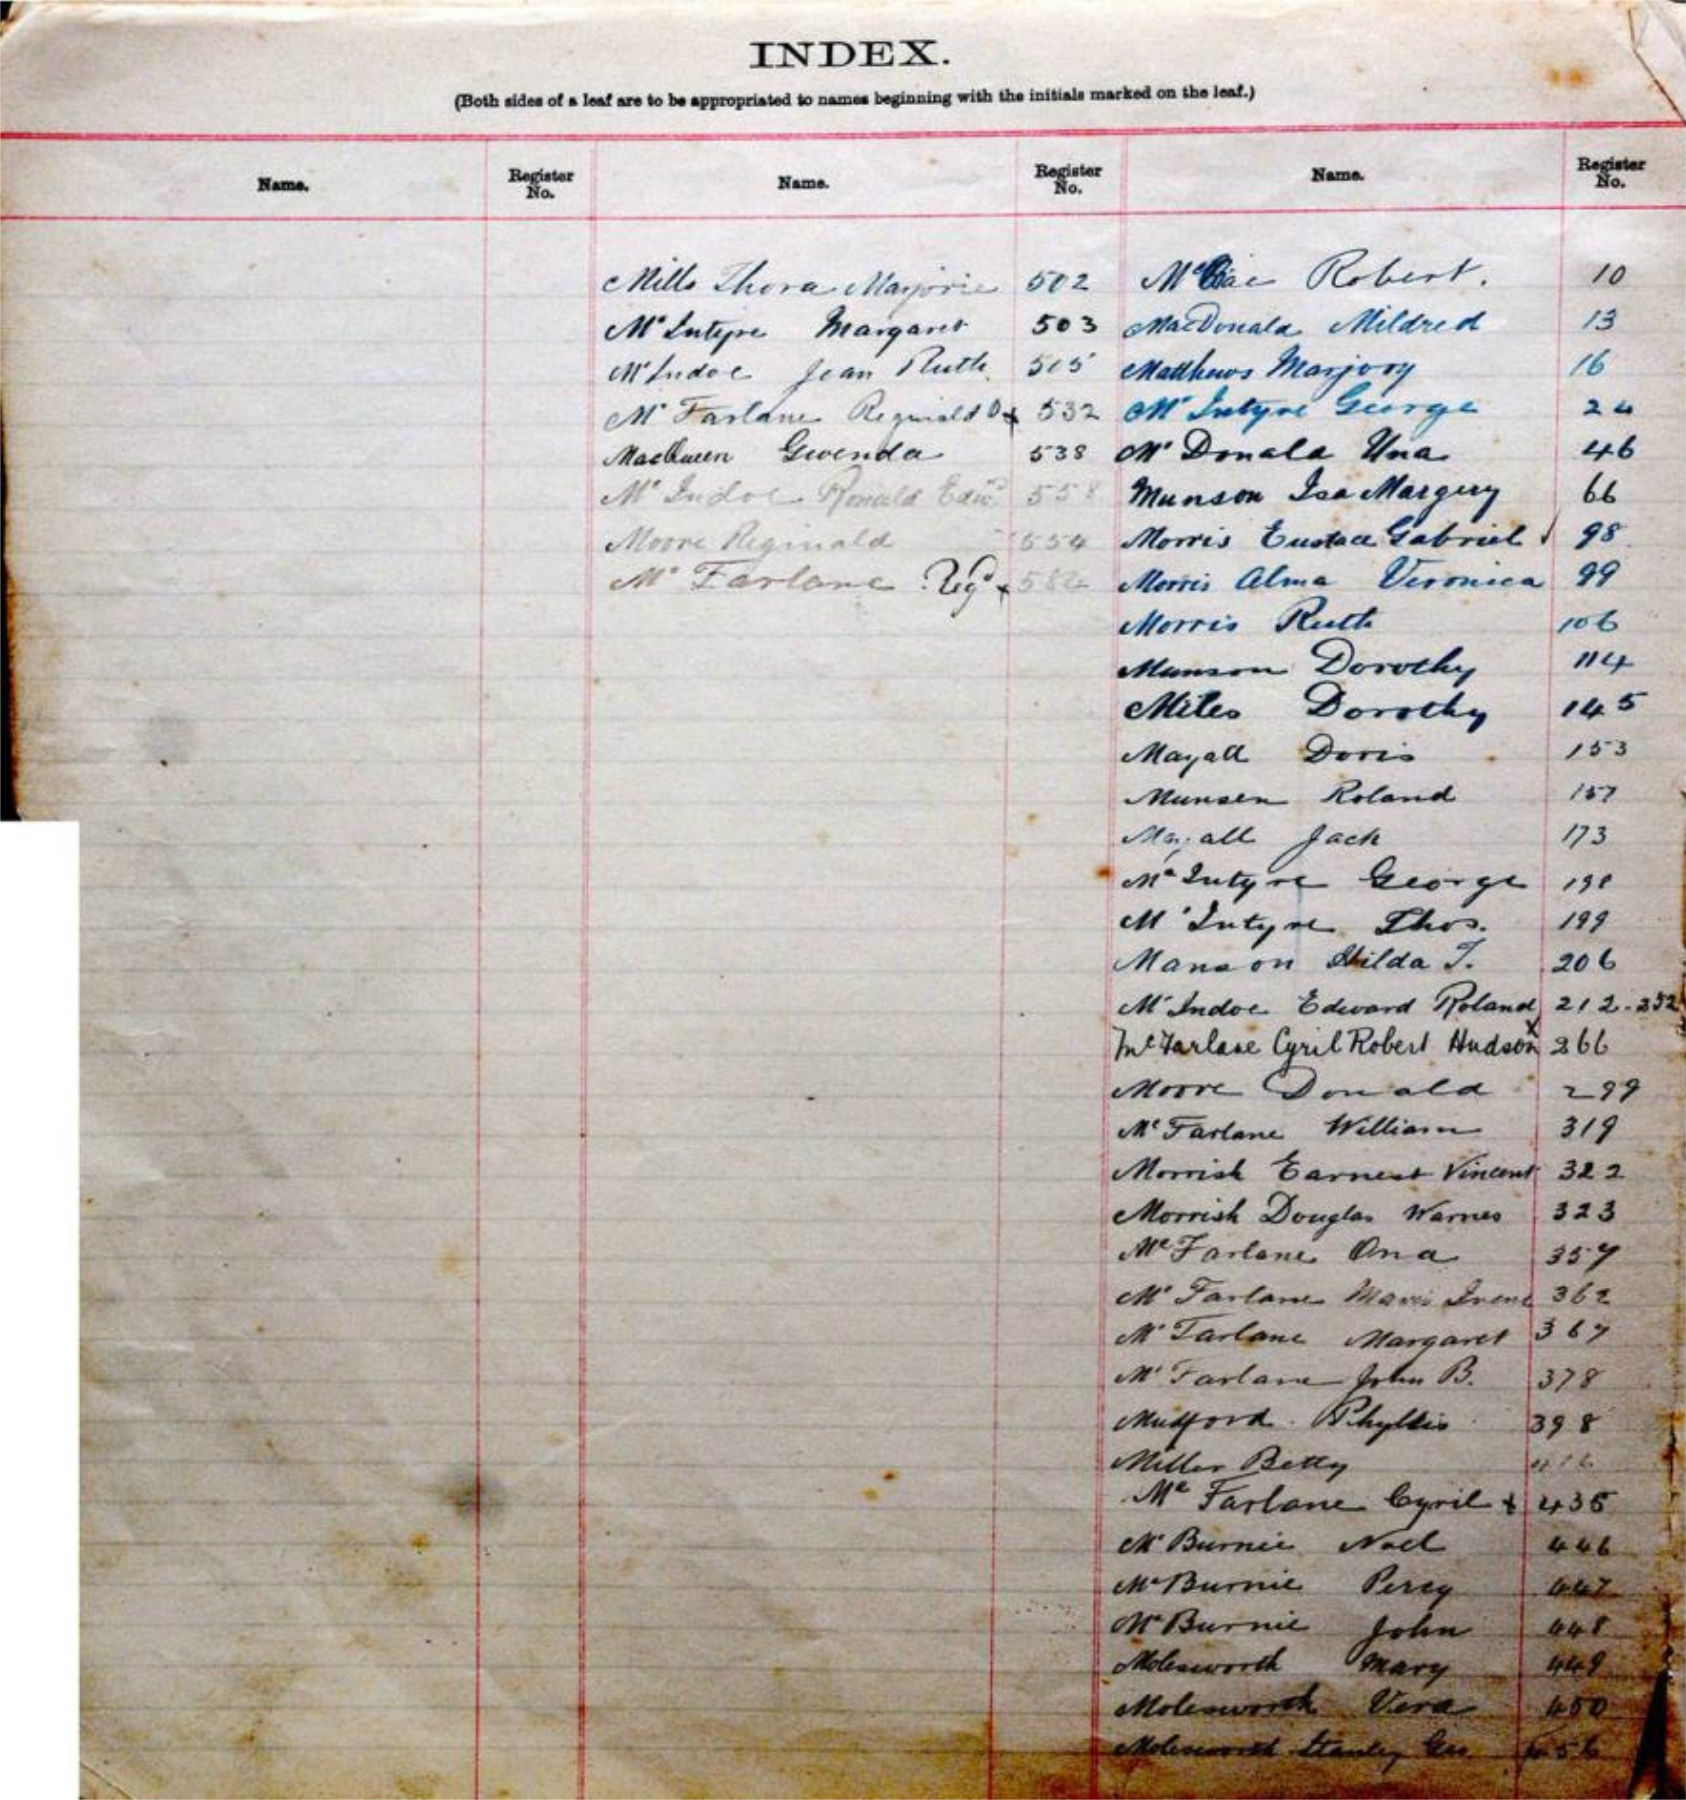 INDEX.
(Both sides of a leaf are to be appropriated to names beginning with the initials marked on the leaf.)
Name. Register No. Name. Register No. Name. Register No.
Mills Thora Marjorie 502
McIntyre Margaret 503
McIndoe Jean Ruth 515
McFarlane Reginald D x 532
MacQueen Gwenda 538
McIndoe Ronald Edwd 558
Moore Reginald 554
McFarlane Regd x
Robert. 10
MacDonald Mildred 13
Matthews Marjory 16
McIntyre George 24
McDonald Una 46
Munson Isa Margery 66
Morris Eustace Gabriel 98
Morris Alma Veronica 99
Morris Ruth 106
Munson Dorothy 114
Miles Dorothy 145
Mayall Doris 153
Munsen Roland 157
Mayall Jack 173
McIntyre George 198
McIntyre Thos. 199
Manson Hilda T. 206
McIndoe Edward Roland 212-252
McFarlane Cyril Robert Hudson x 266
Moore Donald 299
McFarlane William 319
Morrish Earnest Vincent 322
Morrish Douglas Warnes 323
McFarlane Ona 357
McFarlane Mavis Irene 362
McFarlane Margaret 367
McFarlane John B. 378
Mudford Phyllis 398
Miller Betty
McFarlane Cyril x 435
McBurnie Noel 446
McBurnie Percy 447
McBurnie John 448
Molesworth Mary 449
Molesworth Vera 450
Molesworth Stanley Geo 456